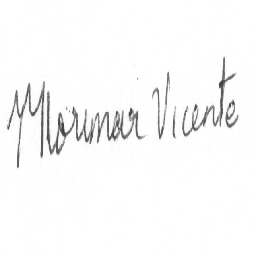 Morimar Vicente